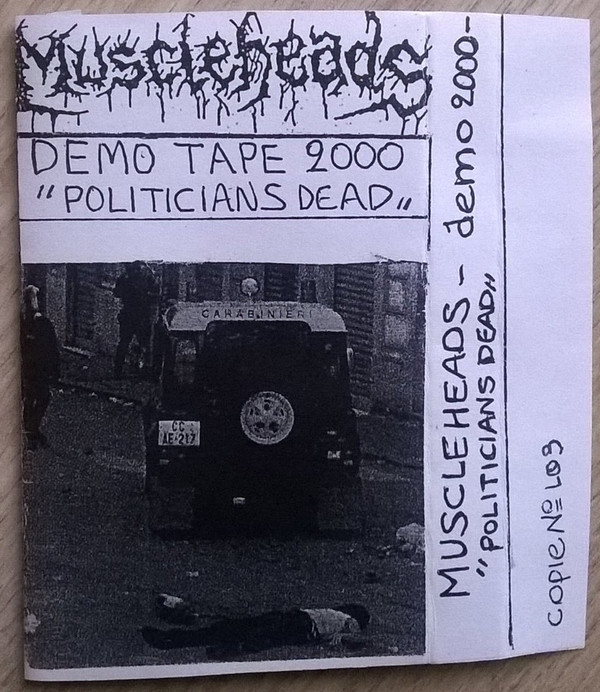 Muscleheads
DEMO TAPE 2000
"POLITICIANS DEAD"
CARABINIERI
CC
AE-217
MUSCLEHEADS - demo 2000-
"POLITICIANS DEAD"
COPIE Nº